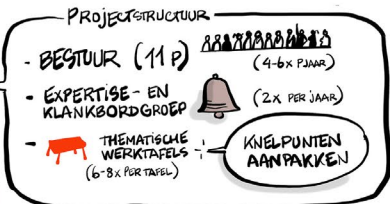 PROJECTSTRUCTUUR
- BESTUUR (11 P) (4-6x P/JAAR)
- EXPERTISE- EN
KLANKBORDGROEP (2x PER JAAR)
- THEMATISCHE
WERKTAFELS
(6-8x PER TAFEL)
KNELPUNTEN
AANPAKKEN